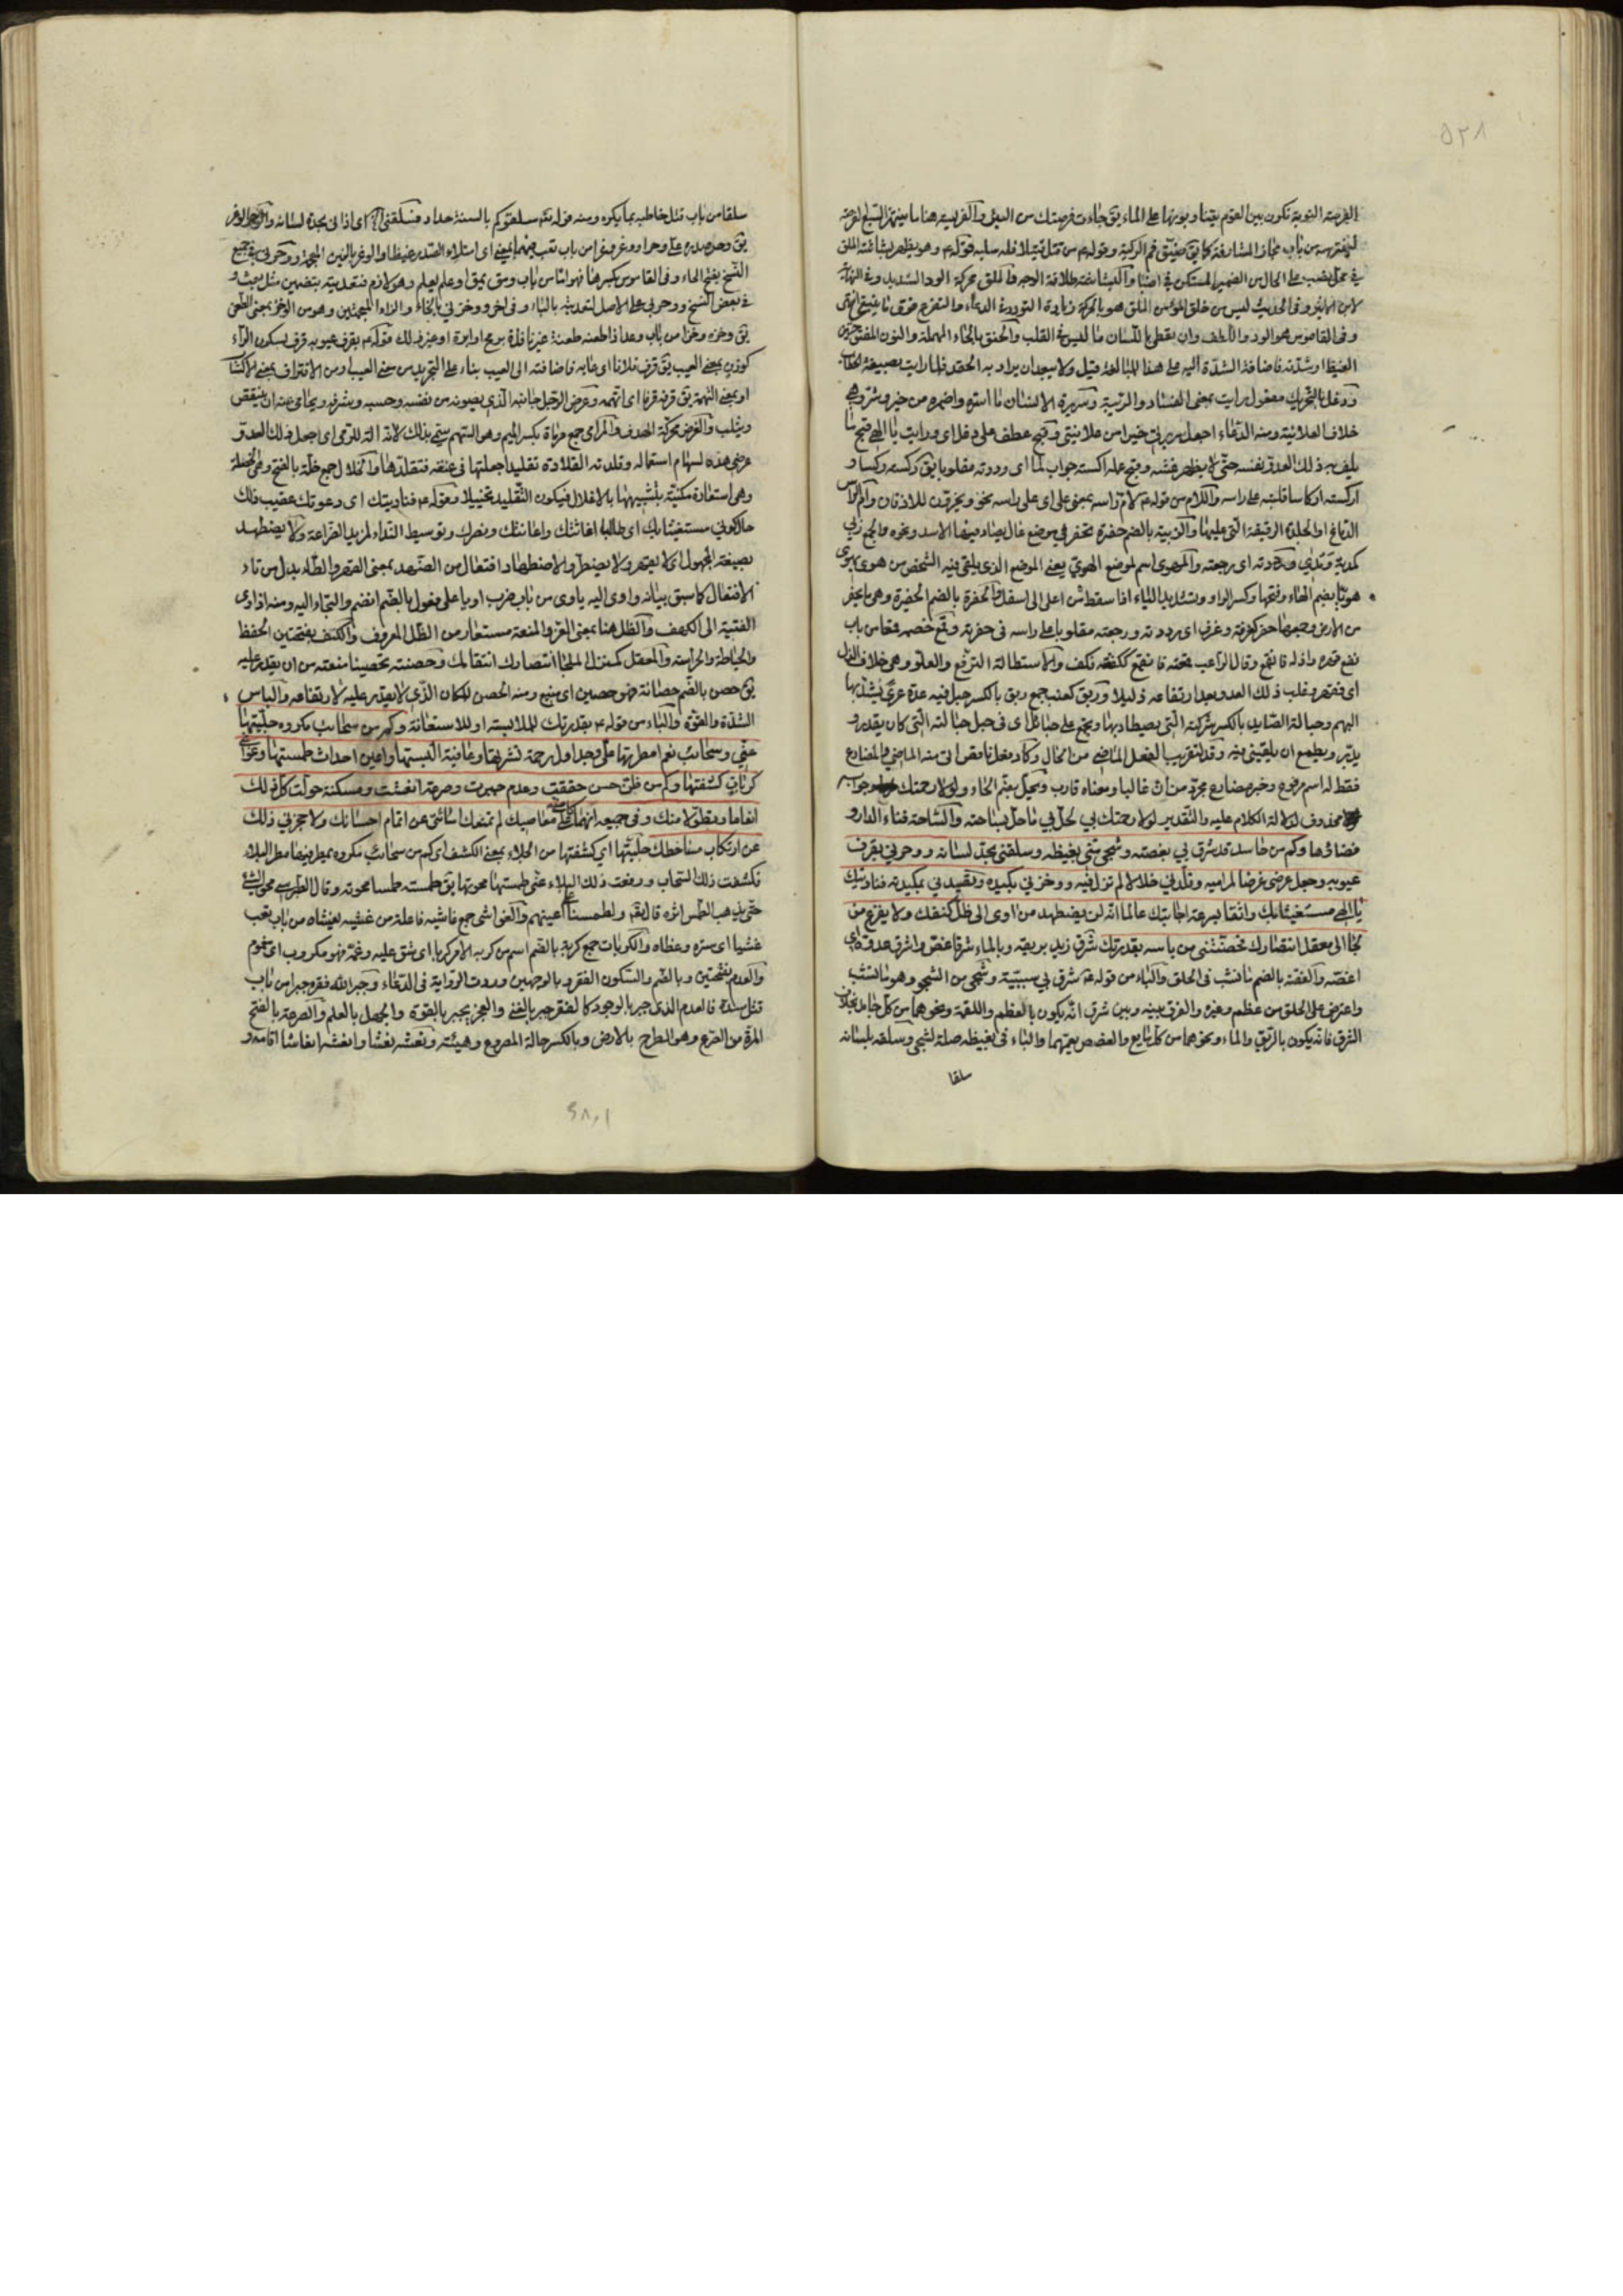 ٥٢٨
الفرصة النوبة تكون بين القوم يتناوبونها على الماء يق جاءت فرصتك من البئر والفريسة هنا ما ينتهز السبع لفرصة
ليفترسه من باب مجاز المشارفة كما يق ضيّق فم الركية وقوله ع من قتل قتيلا فله سلبه قوله ع وهو يظهر بشاشة الملق
في محل نصب على الحال من الضمير المستكن في اضبأ والبشاشة طلاقة الوجه والملق محركة الود الشديد وفي النهاية
لابن الاثير وفي الحديث ليس من خلق المؤمن الملق هو بالحركة زيادة التودد والدعاء والتضرع فوق ما ينبغي انتهى
وفي القاموس هو الود واللطف وان يعطي باللسان ما ليس في القلب والحنق بالحاء المهملة والنون المفتوحتين
الغيظ او شدته فاضافة الشدة اليه على هذا للمبالغة قيل ولا يبعد ان يراد به الحقد فلما رايت بصيغة الخطاب
ودغل بالتحريك مفعول رايت بمعنى الفساد والريبة وسريرة الانسان ما اسره واضمره من خير وشر وهي
خلاف العلانية ومنه الدعاء اجعل سريرتي خيرا من علانيتي وقبح عطف على دغل اي ورايت يا الهي قبح ما
يلف به ذلك العدو نفسه حتى لا يظهر غشه وقبح عمله اركسته جواب لما اى رددته مقلوبا يق ركسته ركسا و
اركسته اركاسا قلبته على راسه واللام من قوله ع لام راسه بمعنى على اى على راسه نحو ويخرون للاذقان وام الراس
الدماغ او الجلدة الرقيقة التي عليها والزبية بالضم حفرة تحفر في موضع عال يصاد فيها الاسد ونحوه والجمع زبي
كمدية ومدى ورددته اى رجعته والمهوى اسم لموضع الهويّ يعني الموضع الذي يلقى فيه الشخص من هوى يهوى
هويا بضم الهاء وفتحها وكسر الواو وتشديد الياء اذا سقط من اعلى الى اسفل والحفرة بالضم الحفيرة وهي ما يحفر
من الارض وجمعها حفر كغرفة وغرف اى رددته ورجعته مقلوبا على راسه في حفرته وقمع خصمه قمعا من باب
نفع قهره واذله فانقمع وقال الراغب قمعته فانقمع كففته فكف والاستطالة الترفع والعلو وهي خلاف الذل
اى فقهر وغلب ذلك العدو بعد ارتفاعه ذليلا وربق كعنب جمع ربق بالكسر حبل فيه عدة عرى يشد بها
البهم وحبالة الصايد بالكسر شركته التي يصطاد بها وتجمع على حبائل اى في حبل حبالته التي كان يقدر و
يدبر ويطمع ان يلقيني فيه وقد لتقريب الفعل الماضي من الحال وكاد فعل ناقص اتى منه الماضي والمضارع
فقط له اسم مرفوع وخبر مضارع مجرد من ان غالبا ومعناه قارب ويحل بضم الحاء ولولا رحمتك جواب
محذوف لدلالة الكلام عليه والتقدير لولا رحمتك بي لحل بي ما حل بساحته والساحة فناء الدار و
فضاؤها وكم من حاسد قد شرق بي بغصته وشجي منّي بغيظه وسلقني بحدّ لسانه ووحرني بقرف
عيوبه وجعل عرضي غرضا لمراميه وقلّدني خلالا لم تزل فيه ووخزني بكيده وقصدني بمكيدته فناديتك
يا الهي مستغيثا بك واثقا بسرعة اجابتك عالما انّه لن يضطهد من اوى الى ظلّ كنفك ولا يفزع من
لجا الى معقل انتصارك فحصّنتني من باسه بقدرتك شرق زيد بريقه وبالماء شرقا غصّ واشرق عدوه اى
اغصه والغصة بالضم ما نشب في الحلق والباء من قوله ع شرق بي سببية وشجي من الشجو وهو ما نشب
واعترض على الحلق من عظم وغيره والفرق بينه وبين شرق انه يكون بالعظم واللقمة ونحوهما من كل جامد بخلاف
الشرق فانه يكون بالريق والماء ونحوهما من كل مايع والغصص يعمهما والباء في بغيظه صلة لشجي وسلقه بلسانه
سلقا
سلقا من باب قتل خاطبه بما يكره ومنه قوله تع سلقوكم بالسنة حداد فسلقني اى اذاني بحدة لسانه والوحر الوغر
يق وحر صدره على وحرا ووغر وغرا من باب تعب فيهما بمعنى اى امتلاء الصدر غيظا والوغر بالغين المعجمة ووحرني في جميع
النسخ بفتح الحاء وفي القاموس بكسرها فهو اما من باب ومق يمق او علم يعلم وهو لازم فتعديته بتضمين مثل بعث و
في بعض النسخ ووحر بي على الاصل لتعديته بالباء وفي اخر ووخزني بالخاء والزاء المعجمتين وهو من الوخز بمعنى الطعن
يق وخزه وخزا من باب وعد اذا طعنه طعنة غير نافذة برمح او ابرة او غير ذلك قوله ع بقرف عيوبه قرف بسكون الراء
كوزن بمعنى العيب يق قرف فلانا اى عابه فاضافته الى العيب بناء على التجريد من معنى العيب او من الاقتراف بمعنى الاكتساب
او بمعنى التهمة يق قرفه قرفا اى اتهمه وعرض الرجل جانبه الذي يصونه من نفسه وحسبه وشرفه ويحامى عنه ان ينتقص
ويثلب والغرض محركة الهدف والمرامي جمع مرماة بكسر الميم وهو السهم سمّي بذلك لانه الة للرمي اى اجعل ذلك العدو
عرضي هذه لسهام استعماله وقلدته القلادة تقليدا جعلتها في عنقه فتقلدها والخلال جمع خلّة بالفتح وهي الخصلة
وهي استعارة مكنيّة بتشبيهها بالاغلال فيكون التقليد تخييلا وقوله ع فناديتك اى دعوتك عقيب ذلك
حالكوني مستغيثا بك اى طالبا اغاثتك واعانتك ونصرك وتوسيط النداء لمزيد الضراعة ولا يضطهد
بصيغة المجهول اى لا يقهر ولا يضطر والاضطهاد افتعال من الضهد بمعنى القهر والطاء بدل من تاء
الافتعال كما سبق بيانه واوى اليه ياوى من باب ضرب اويا على فعول بالضم انضم والتجاء اليه ومنه اذ اوى
الفتية الى الكهف والظل هنا بمعنى العز والمنعة مستعار من الظل المعروف والكنف بفتحتين الحفظ
والحياطة والحراسة والمعقل كمنزل الملجا انتصارك انتقامك وحصنته تحصينا منعته من ان يقدر عليه
يق حصن بالضم حصانة فهو حصين اى منيع ومنه الحصن للمكان الذي لا يقدر عليه لارتفاعه والباس
الشدة والقوة والباء من قوله ع بقدرتك للملابسة او للاستعانة وكم من سحائب مكروه جلّيتها
عنّي وسحائب نعم امطرتها عليّ وجداول رحمة نشرتها وعافية البستها واعين احداث طمستها وغواشي
كربات كشفتها وكم من ظنّ حسن حققت وعدم جبرت وصرعة انعشت ومسكنة حوّلت كلّ ذلك
انعاما وتطوّلا منك وفي جميعه انهماكا منّي على معاصيك لم تمنعك اسائتي عن اتمام احسانك ولا حجرني ذلك
عن ارتكاب مساخطك جلّيتها اى كشفتها من الجلاء بمعنى الكشف اى كم من سحائب مكروه يمطر فيها مطر البلاء
فكشفت ذلك السحاب ورفعت ذلك البلاء عنّي طمستها محوتها يق طمسته طمسا محوته وقال الطبرسي محو الشئ
حتى يذهب الطمس اثره قال تع ولطمسنا على اعينهم والغواشي جمع غاشية فاعلة من غشيه يغشاه من باب تعب
غشيا اى ستره وغطاه والكربات جمع كربة بالضم اسم من كربه الامر كربا اى شق عليه وغمّه فهو مكروب اى مغموم
والعدم بفتحتين وبالضم والسكون الفقر وبالوجهين وردت الرواية في الدعاء وجبر الله فقره جبرا من باب
قتل سدّه فالعدم الذي جبر بالوجود كالفقر جبر بالغنى والعجز يجبر بالقوة والجهل بالعلم والصرعة بالفتح
المرة من الصرع وهو الطرح بالارض وبالكسر حالة المصروع وهيئته ونعشه نعشا وانعشه انعاشا اقامه و